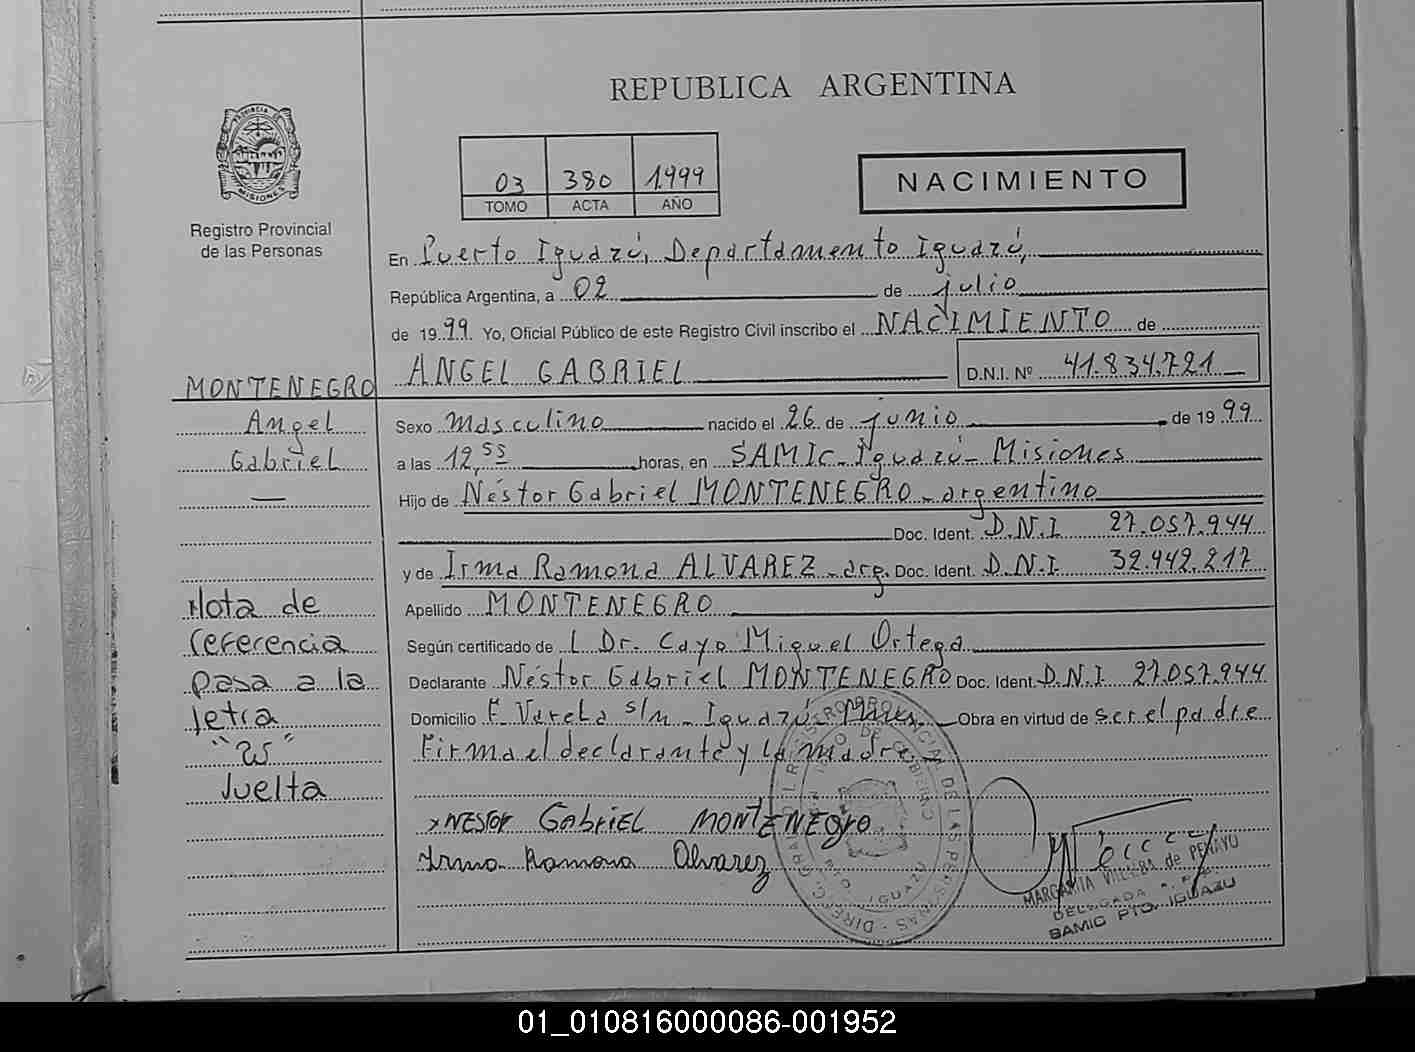 REPUBLICA ARGENTINA
PROVINCIA DE
MISIONES
Registro Provincial
de las Personas
03 380 1999
TOMO ACTA AÑO
NACIMIENTO
En Puerto Iguazú, Departamento Iguazú,
República Argentina, a 02 de julio
de 1999 Yo, Oficial Público de este Registro Civil inscribo el NACIMIENTO de
ANGEL GABRIEL D.N.I. Nº 41.834.721
MONTENEGRO
Angel
Gabriel
Sexo masculino nacido el 26 de junio de 1999
a las 12,55 horas, en SAMIC-Iguazú-Misiones
Hijo de Néstor Gabriel MONTENEGRO-argentino
Doc. Ident. D.N.I 27.057.944
y de Irma Ramona ALVAREZ-arg. Doc. Ident. D.N.I. 32.442.217
Apellido MONTENEGRO
Según certificado de l Dr. Cayo Miguel Ortega
Declarante Néstor Gabriel MONTENEGRO Doc. Ident. D.N.I 27.057.944
Domicilio F Varela s/n-Iguazú- Mnes. Obra en virtud de ser el padre
Firma el declarante y la madre
Nota de
referencia
pasa a la
letra
"W"
Vuelta
NESTOR GabriEL MONTENEGro
Irma Ramona Alvarez
DIREC. GRAL. DEL REGISTRO PROVINCIAL DE LAS PERSONAS
IGUAZU
MARGARITA VILLALBA de PENAYO
DELEGADA
SAMIC PTO. IGUAZU
01_010816000086-001952